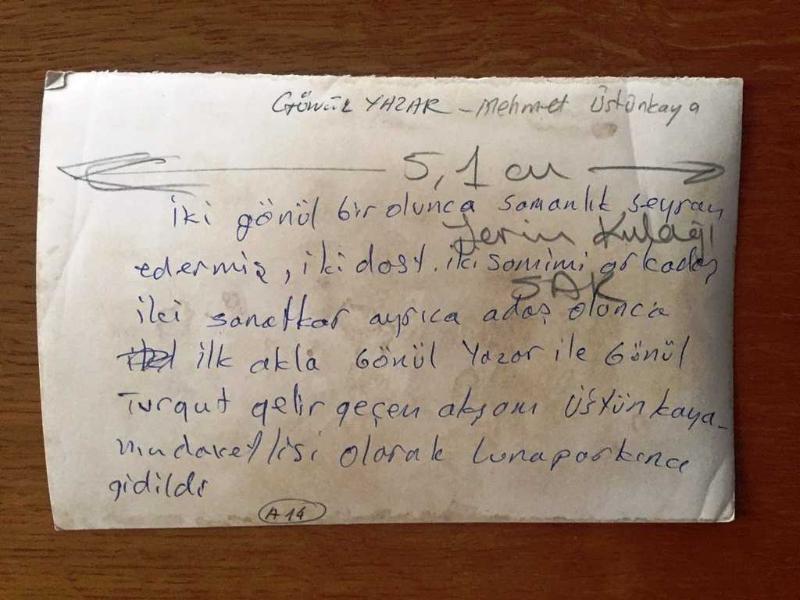 GÖNÜL YAZAR - Mehmet Üstünkaya
5,1 cm
iki gönül bir olunca samanlık seyran
Yerin Kulağı
edermiş, iki dost. iki samimi arkadaş
SAK
iki sanatkar ayrıca adaş olunca
ilk akla Gönül Yazar ile Gönül
Turgut gelir geçen akşam Üstünkaya-
nın davetlisi olarak Lunaparkına
gidildi
A-14